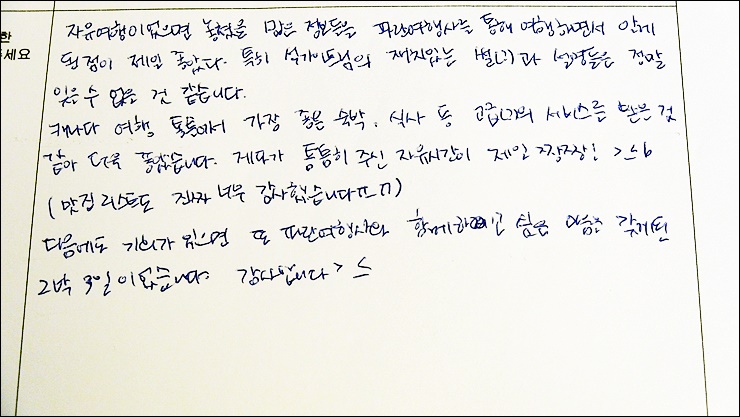 한
세요
자유여행이었으면 놓쳤을 많은 정보들을 파란여행사를 통해 여행하면서 알게
된 점이 제일 좋았다. 특히 석가이드님의 재치있는 별(?)과 설명들은 정말
잊을 수 없을 것 같습니다.
캐나다 여행 통틀어서 가장 좋은 숙박, 식사 등 고급(?)의 서비스를 받은 것
같아 더욱 좋았습니다. 게다가 틈틈히 주신 자유시간이 제일 짱짱! >_<b
(맛집 리스트도 진짜 너무 감사했습니다ㅠㅠ)
다음에도 기회가 있으면 또 파란여행사와 함께하고 싶은 마음을 갖게된
2박 3일이었습니다. 감사합니다>_<